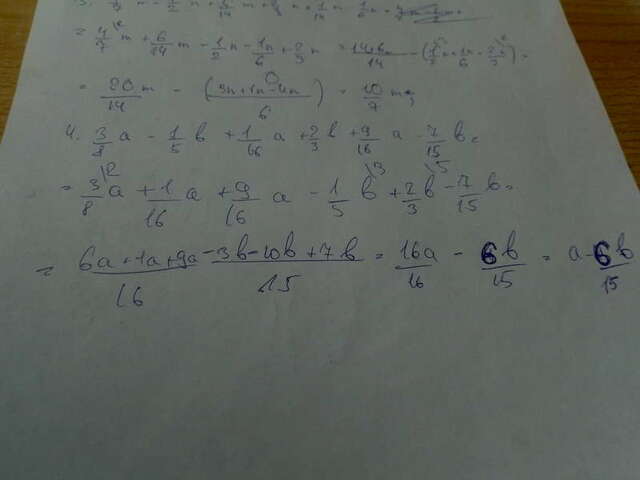 = 4/7 m + 6/14 m - 1/2 n - 1/6 n + 2/3 n =
= 20m/14 - (3n+1n-4n/6) = 10/7 m;
4. 3/8 a - 1/5 b + 1/16 a + 2/3 b + 9/16 a - 7/15 b =
= 3/8 a + 1/16 a + 9/16 a - 1/5 b + 2/3 b - 7/15 b =
= 6a+1a+9a/16 - 3b-10b+7b/15 = 16a/16 - 6b/15 = a - 6b/15